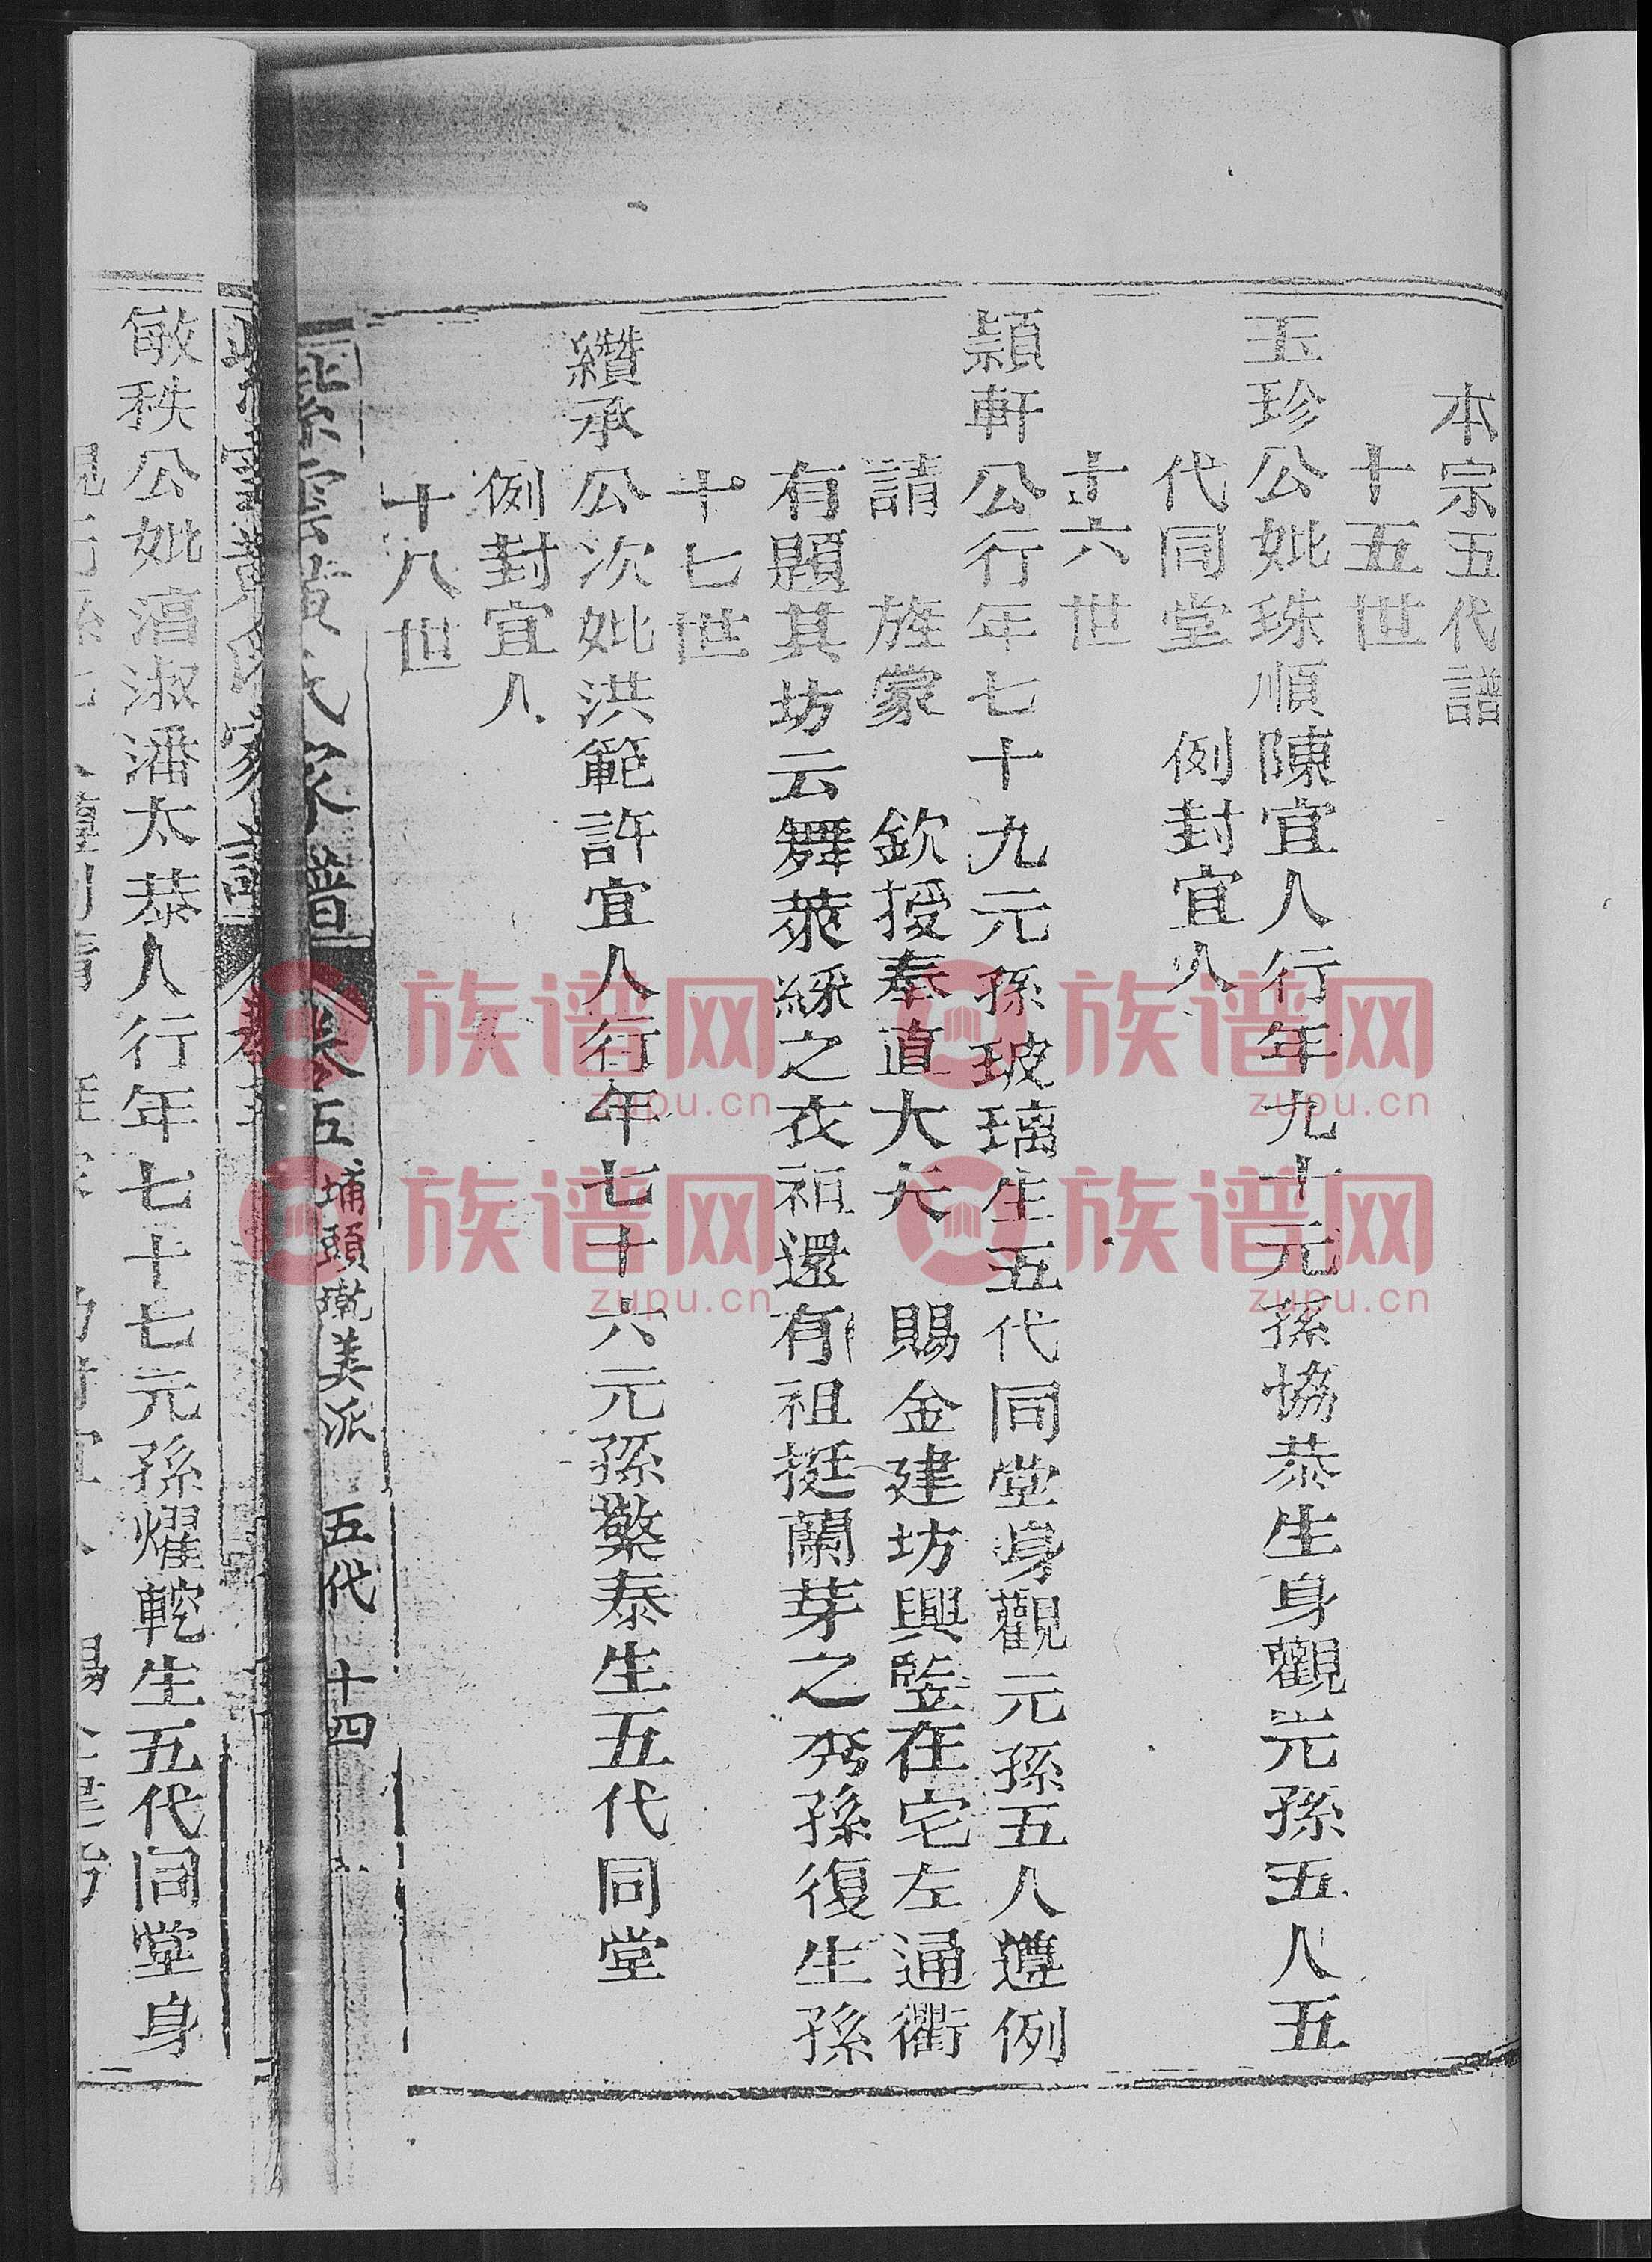 本宗五代譜
十五世
玉珍公妣珠順陳宜人行年九十元孫協恭生身觀元孫五人五
代同堂　例封宜人
十六世
穎軒公行年七十九元孫玻璃生五代同堂身觀元孫五人遵例
請　旌蒙　欽授奉直大夫　賜金建坊興豎在宅左通衢
有題其坊云舞萊綵之衣祖還有祖挺蘭芽之秀孫復生孫
十七世
纘承公次妣洪範許宜人行年七十六元孫檠泰生五代同堂
例封宜人
十八世
氏家譜　卷五　埔頭　美派　五代　十四
敏秩公妣淑潘太恭人行年七十七元孫燿乾生五代同堂身
族谱网
zupu.cn
族谱网
zupu.cn
族谱网
zupu.cn
族谱网
zupu.cn